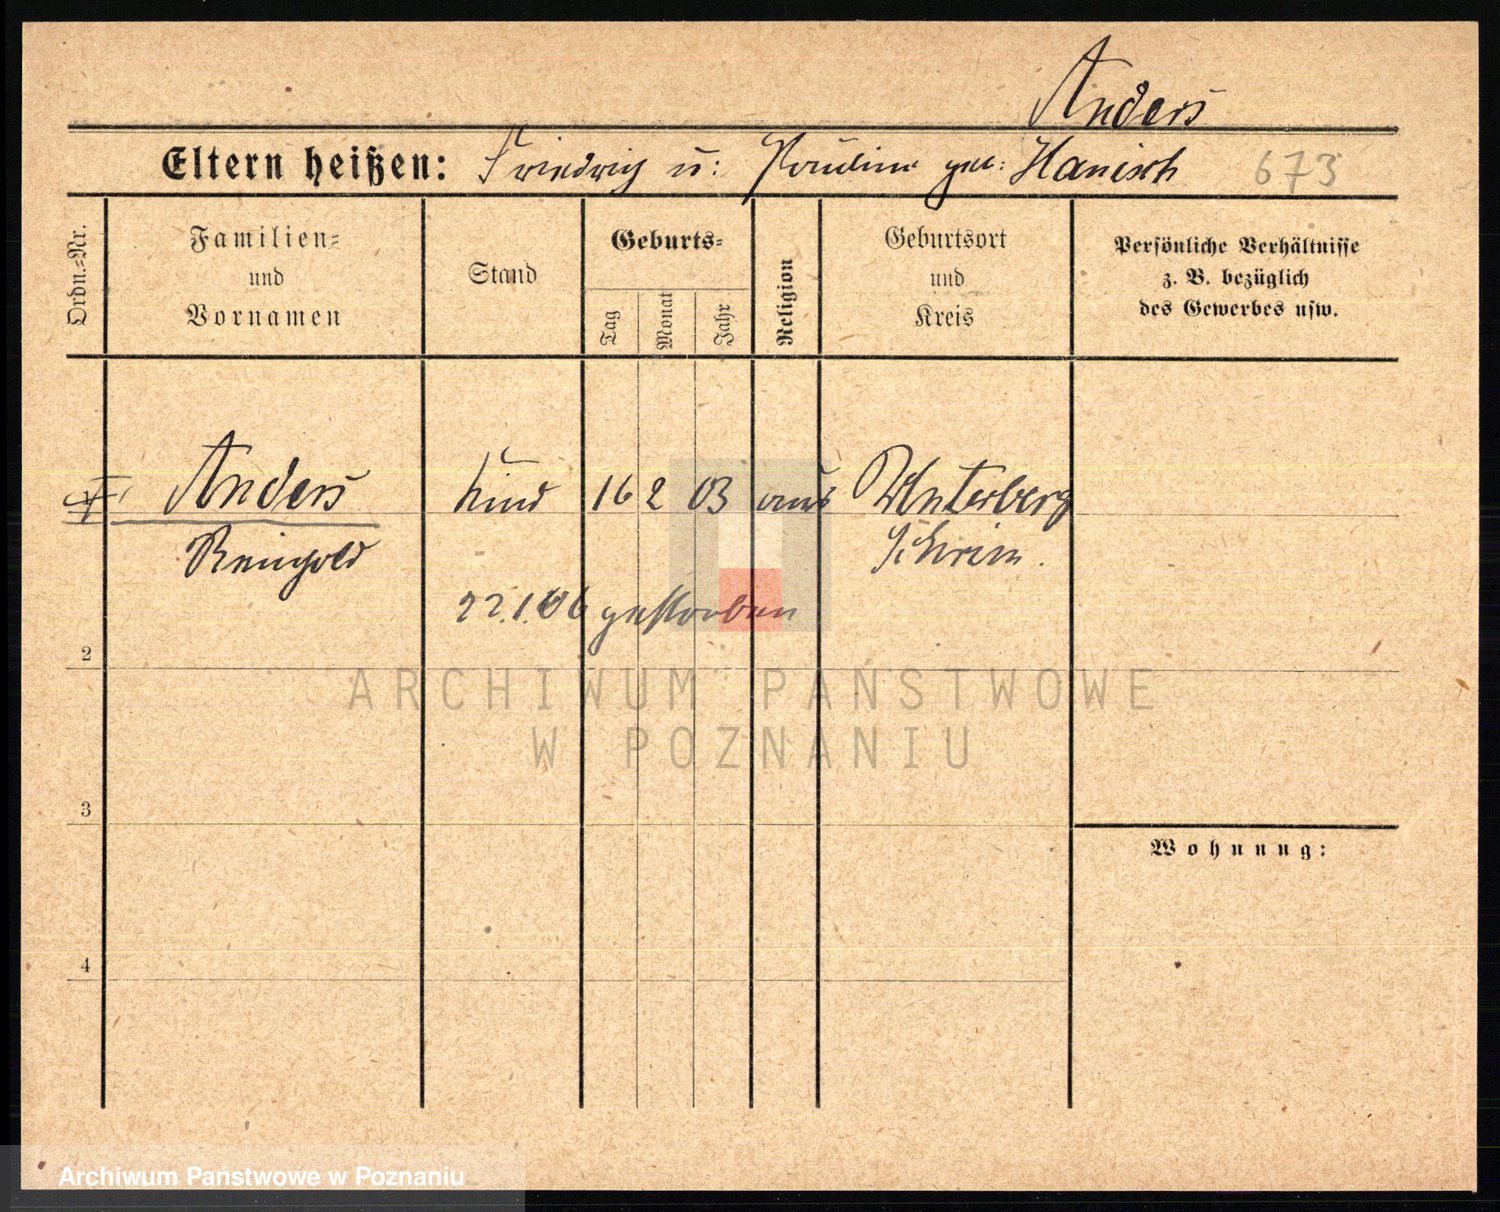 Anders
Eltern heißen: Friedrich u: Pauline geb: Hanisch 673
Ordn.-Nr.
Familien- und Vornamen
Stand
Geburts-
Tag
Monat
Jahr
Religion
Geburtsort und Kreis
Persönliche Verhältnisse z. B. bezüglich des Gewerbes usw.
Anders Kind 16 2 03
Reinhold Schrim.
22.1.06 gestorben
2
3
4
Wohnung:
ARCHIWUM PAŃSTWOWE
W POZNANIU
Archiwum Państwowe w Poznaniu